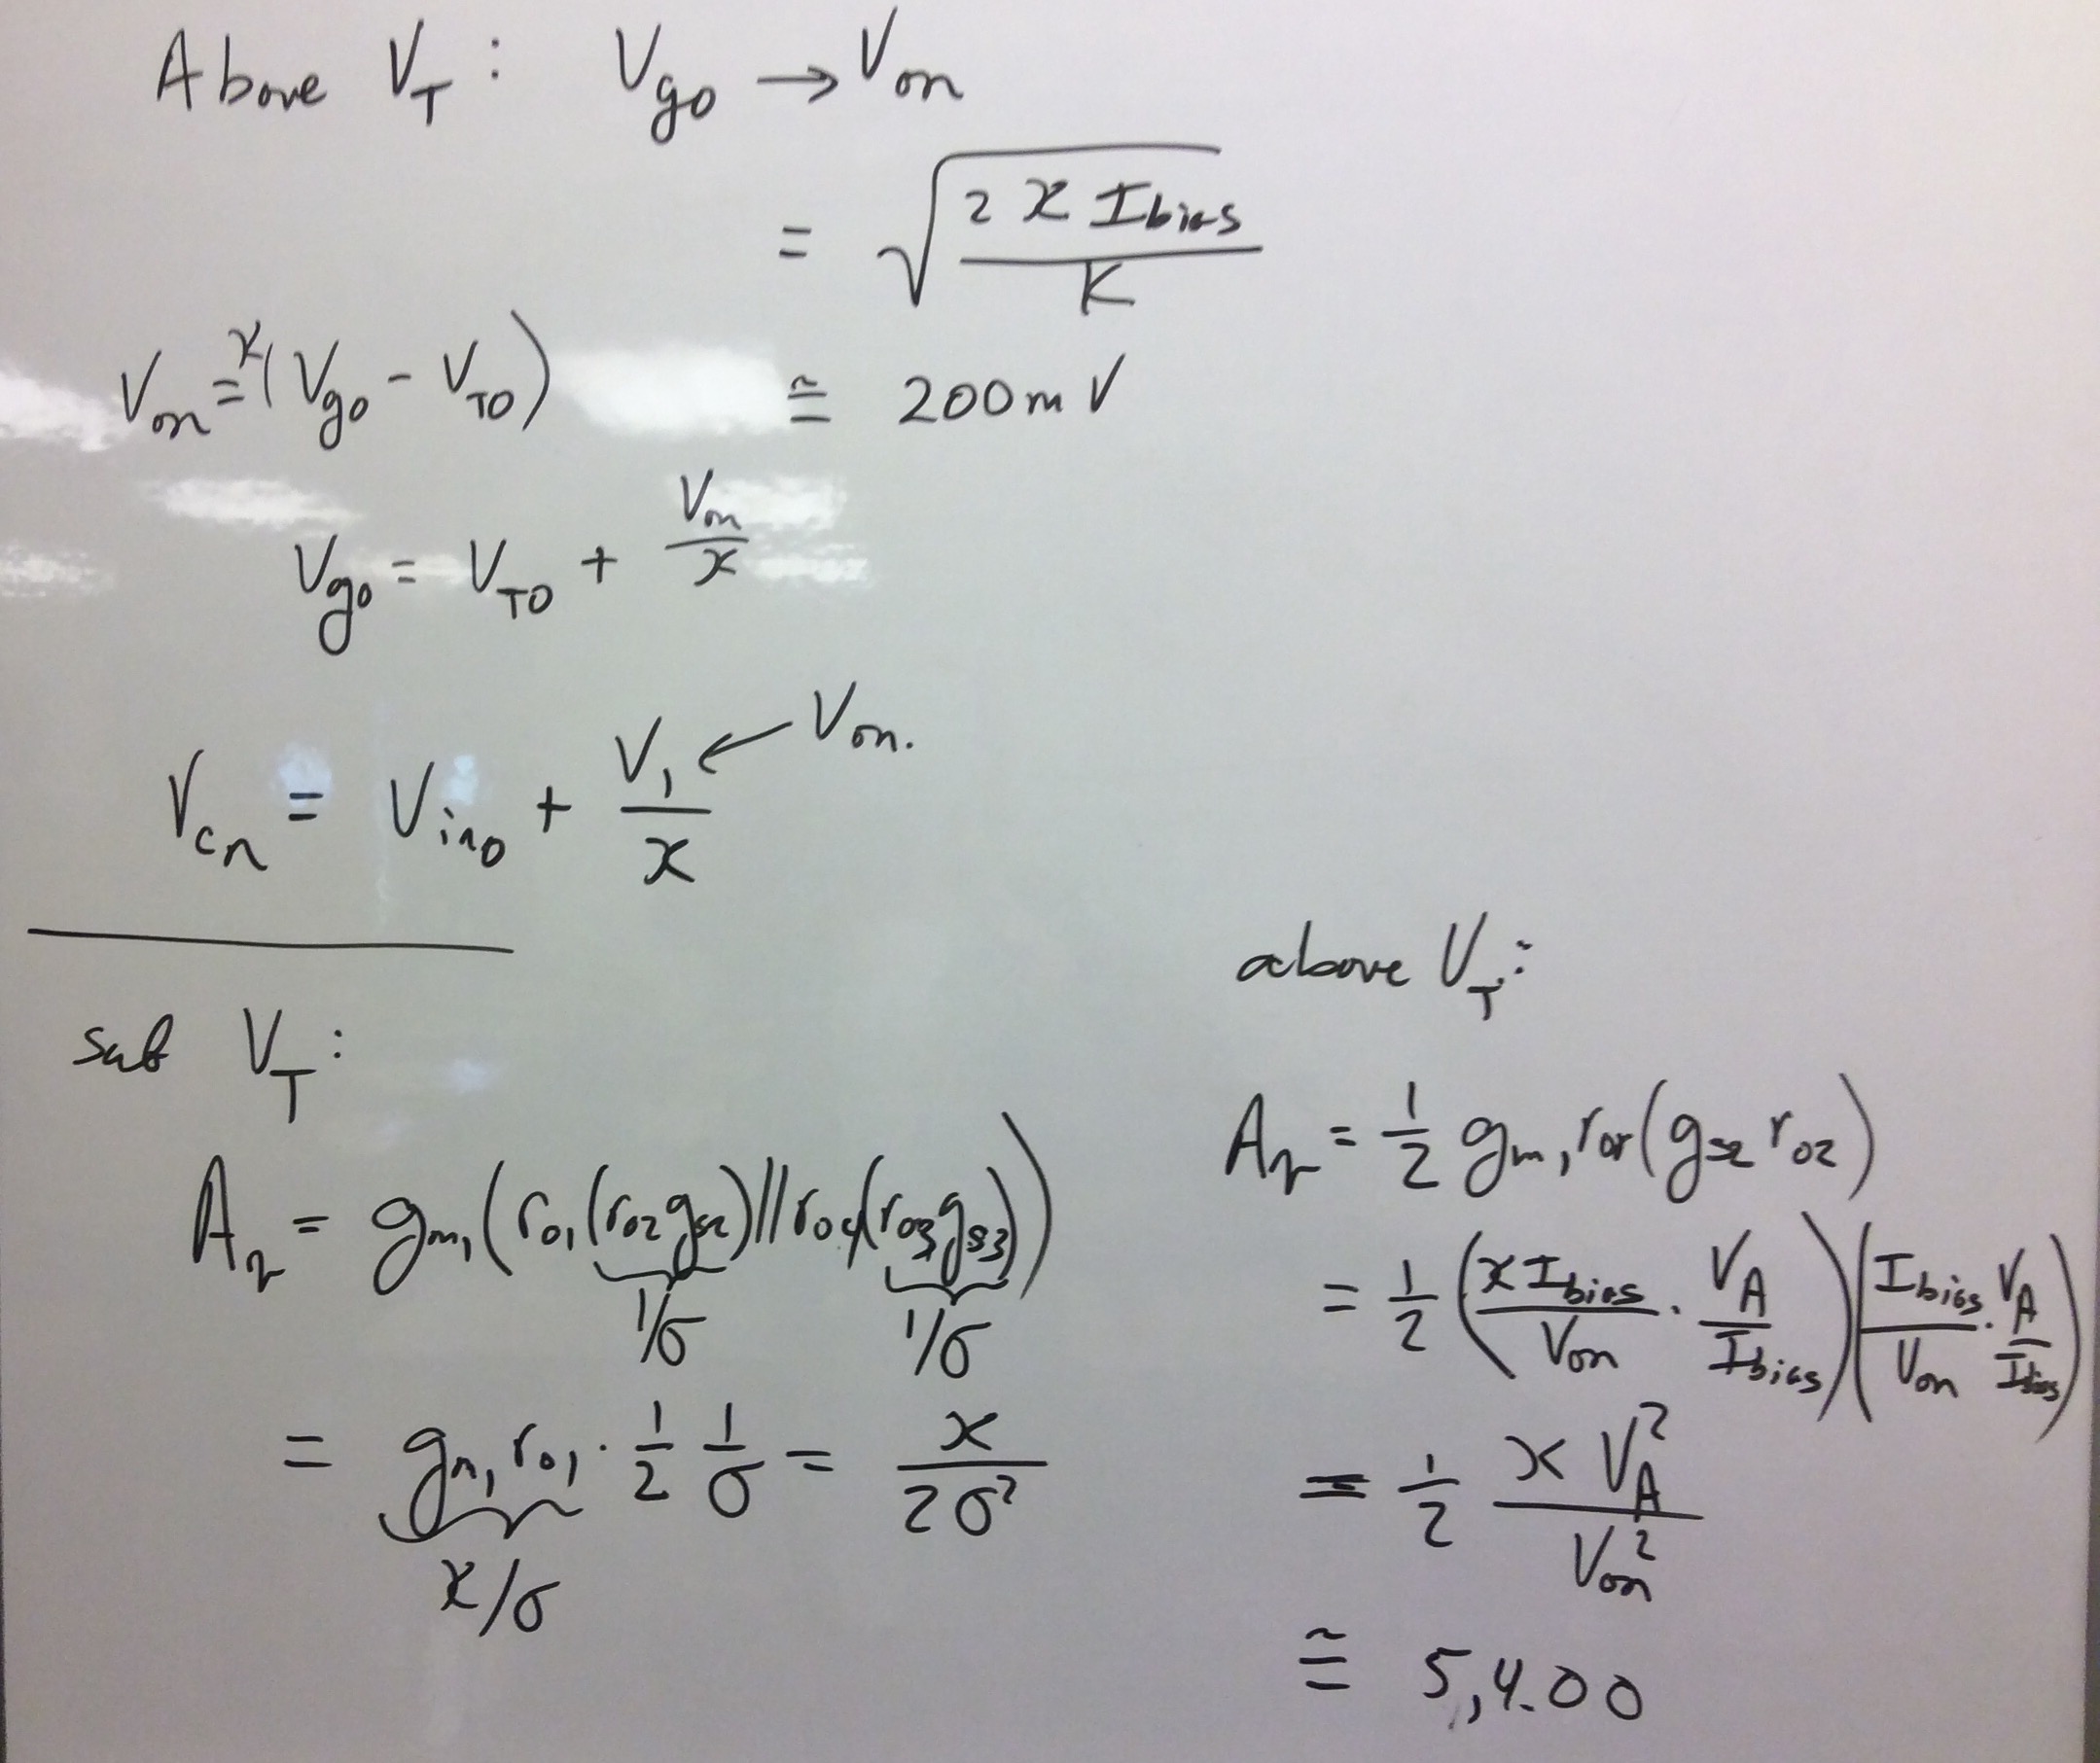 Above V_T : V_go → V_on
= √(2 x I_bias / K)
V_on = x(V_go - V_T0) ≅ 200mV
V_go = V_T0 + V_on / x
V_cn = V_in0 + V_1 / x ← V_on.
sub V_T :
A_v = g_m1 (r_o1 (r_o2 g_s2) // r_o4 (r_o3 g_s3))
1/σ 1/σ
= g_m1 r_o1 · 1/2 1/σ = x / 2σ²
x/σ
above V_T :
A_v = 1/2 g_m1 r_o1 (g_s2 r_o2)
= 1/2 (x I_bias / V_on · V_A / I_bias) (I_bias / V_on · V_A / I_bias)
= 1/2 x V_A² / V_on²
≅ 5,400